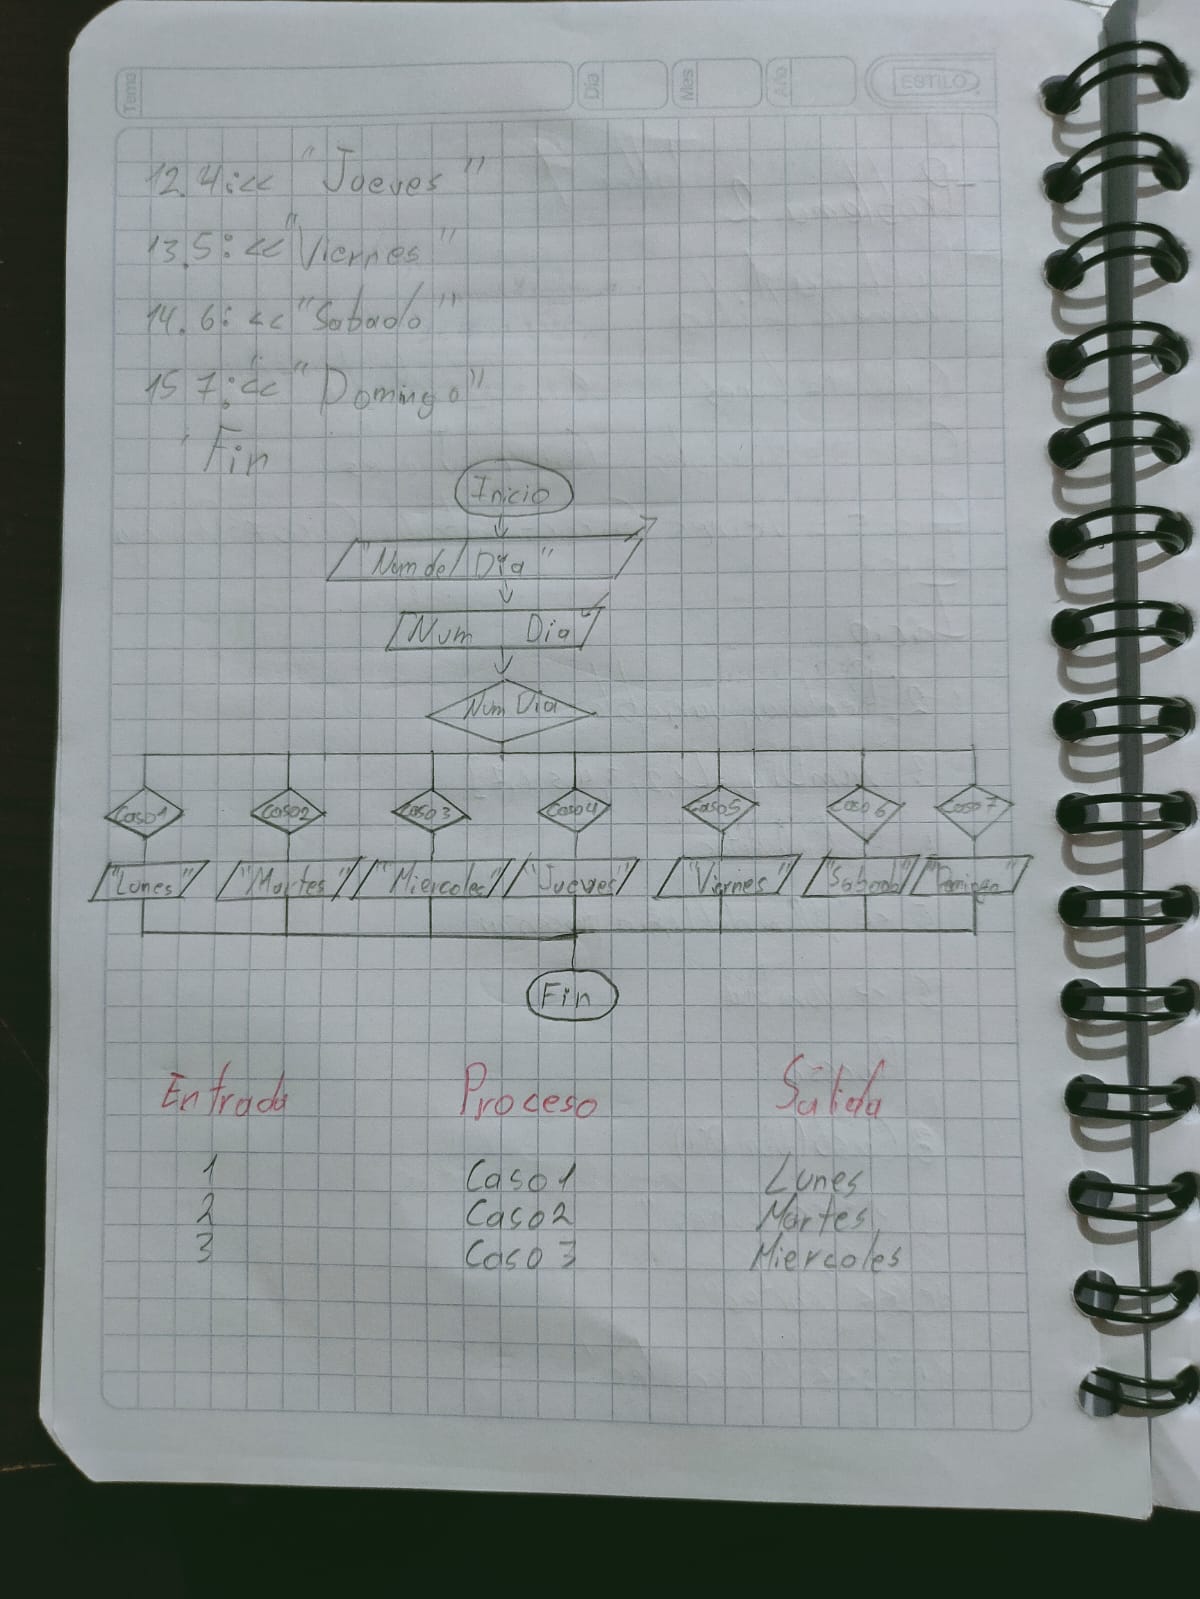 Tema Día Mes Año ESTILO
12. 4:<< "Jueves"
13. 5: << "Viernes"
14. 6: << "Sabado"
15 7: << "Domingo"
Fin
Inicio
"Num del Dia"
Num Dia
Num Dia
Caso1 Caso2 Caso3 Caso4 Caso5 Caso6 Caso7
"Lunes" "Martes" "Miercoles" "Jueves" "Viernes" "Sabado" "Domingo"
Fin
Entrada Proceso Salida
1 Caso1 Lunes
2 Caso2 Martes
3 Caso 3 Miercoles